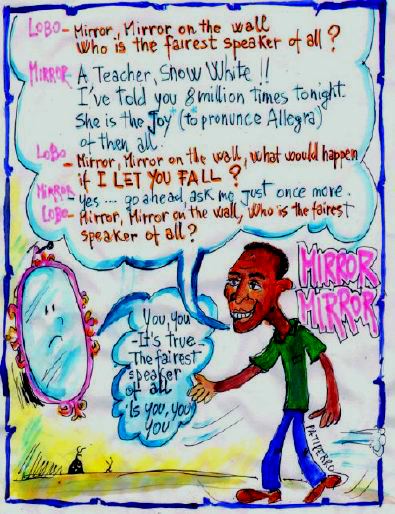 LOBO - Mirror, Mirror on the wall
Who is the fairest speaker of all?
MIRROR A Teacher, Snow White!!
I've told you 8 million times tonight.
She is the Joy (to pronunce Allegra)
of then all.
LOBO - Mirror, Mirror on the wall, what would happen
if I LET YOU FALL?
MIRROR Yes... go ahead, ask me just once more.
LOBO - Mirror, Mirror on the wall, Who is the fairest
speaker of all?
MIRROR
MIRROR
You, you
- It's true
The fairest
speaker
of all
Is you, you
you
PATIPERRO